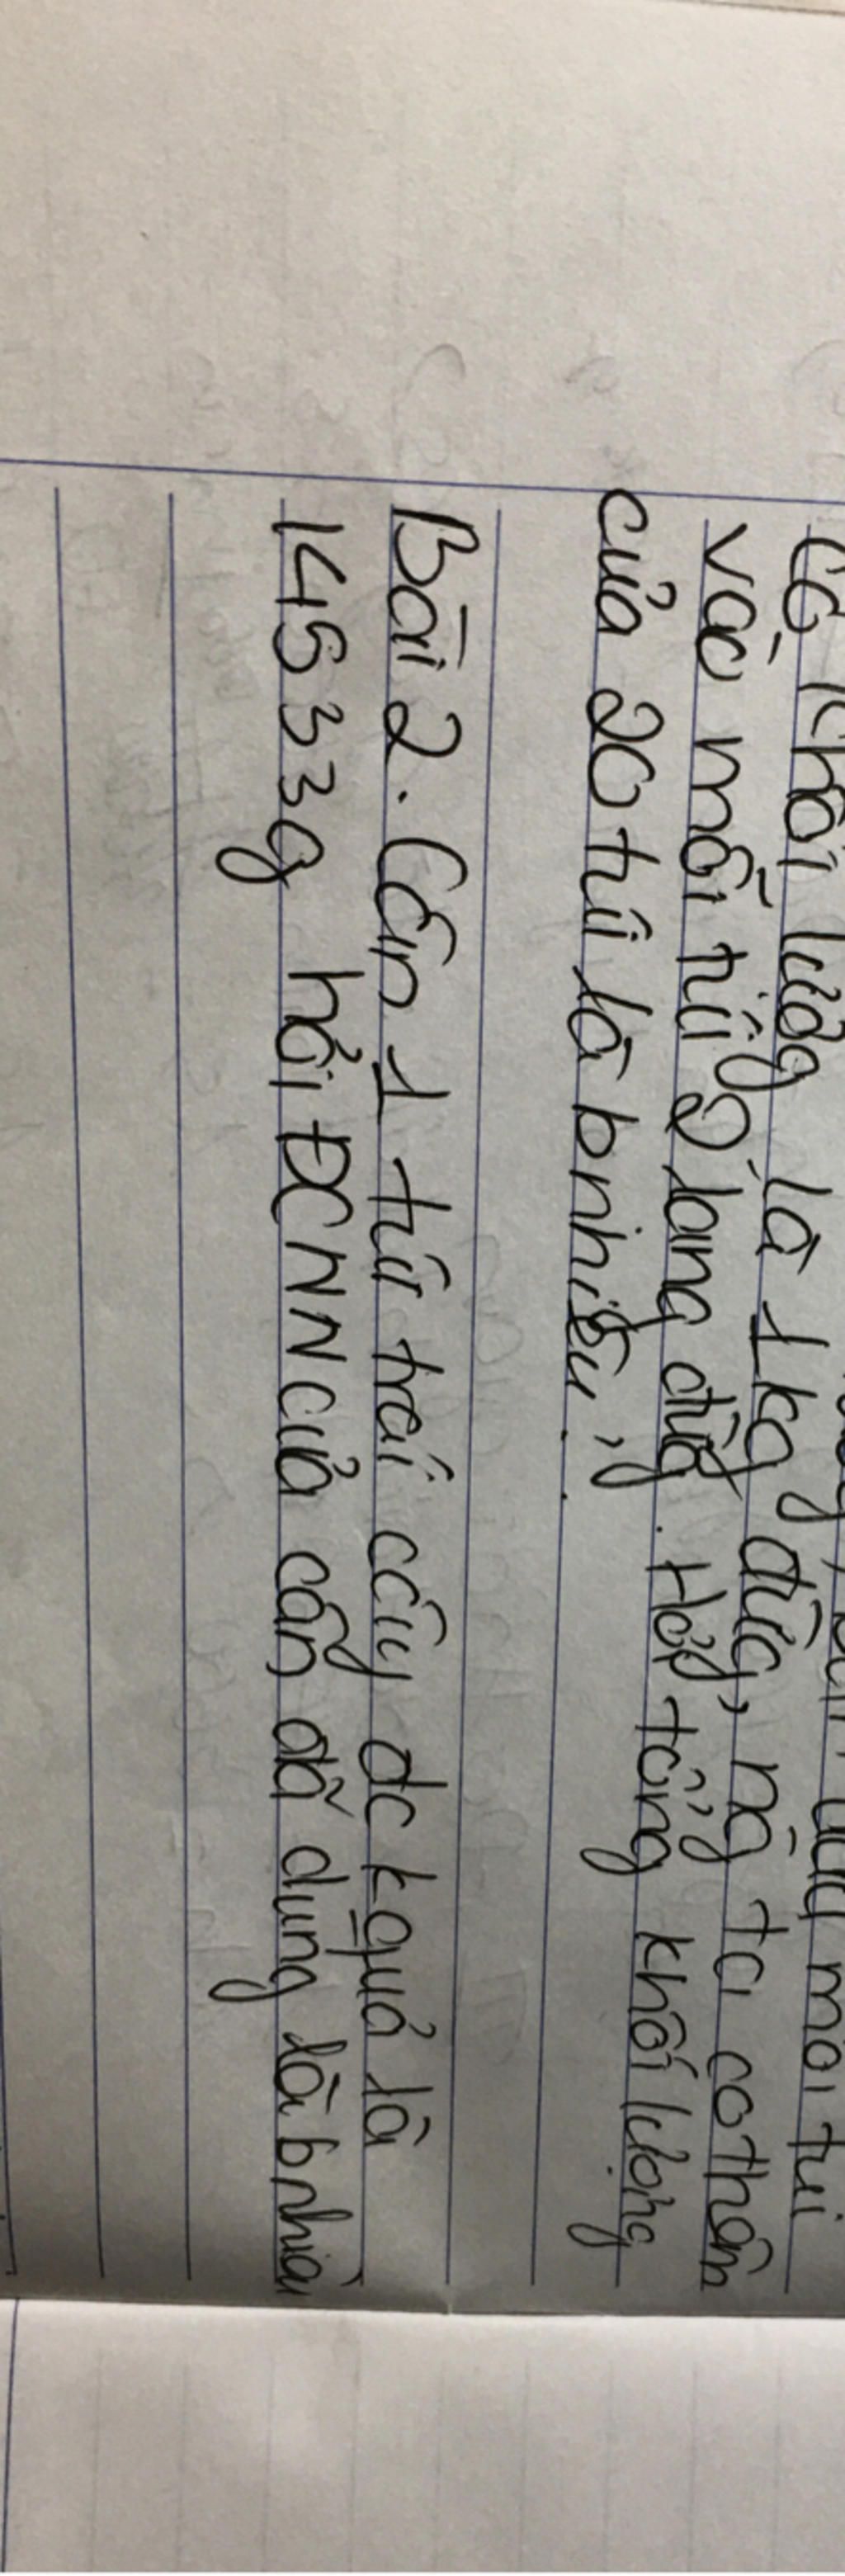 có khối lượng là 1kg đườg, ng ta co thêm
vào mỗi túi 2 lang đườg. Hỏi tổng khối lượng
của 20 túi là b nhiêu?
Bài 2. Cân 1 túi trái cây đc kquả là
14533g hỏi ĐCNN của cân đã dùng là b nhiêu